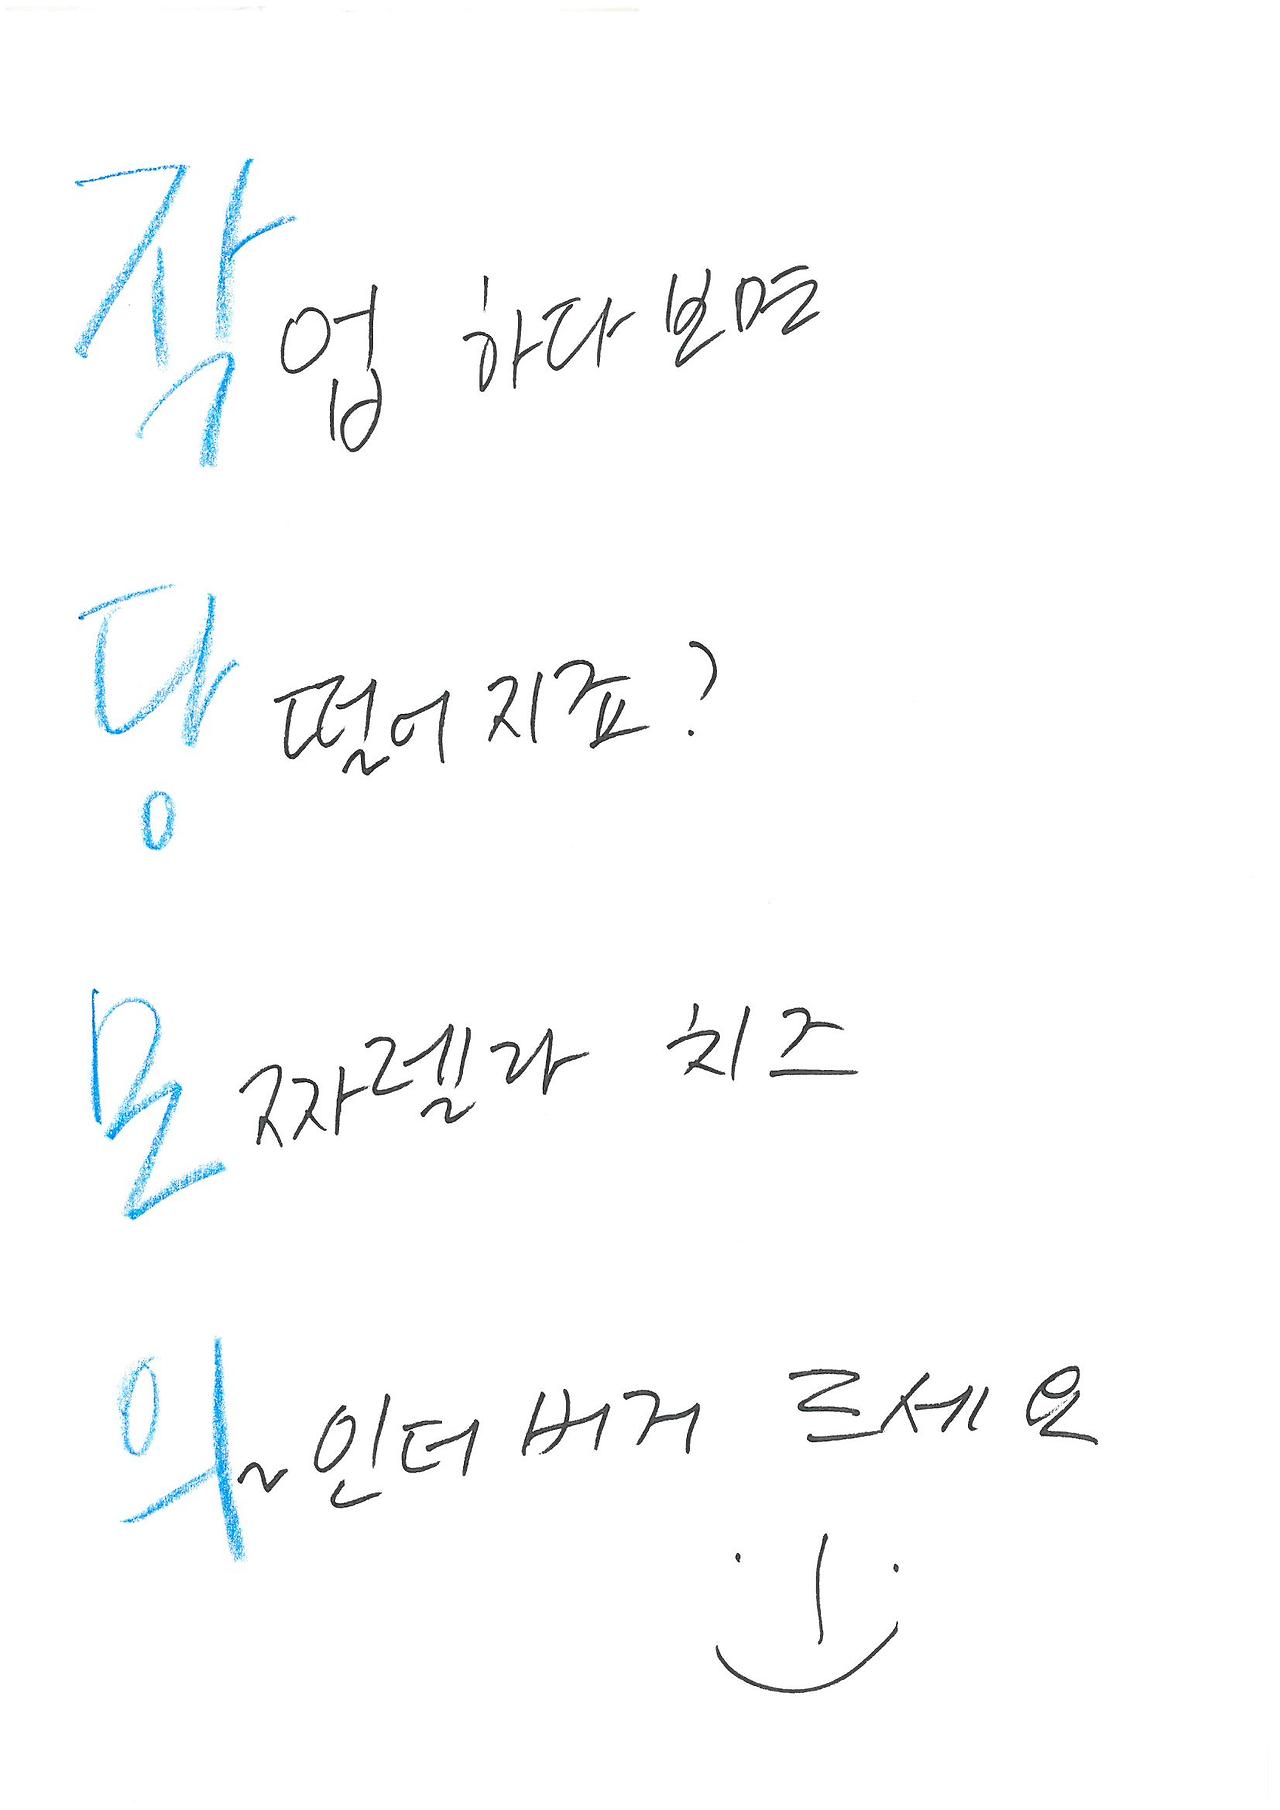 작업 하다보면
당 떨어지죠?
모짜렐라 치즈
의~인더버거 드세요